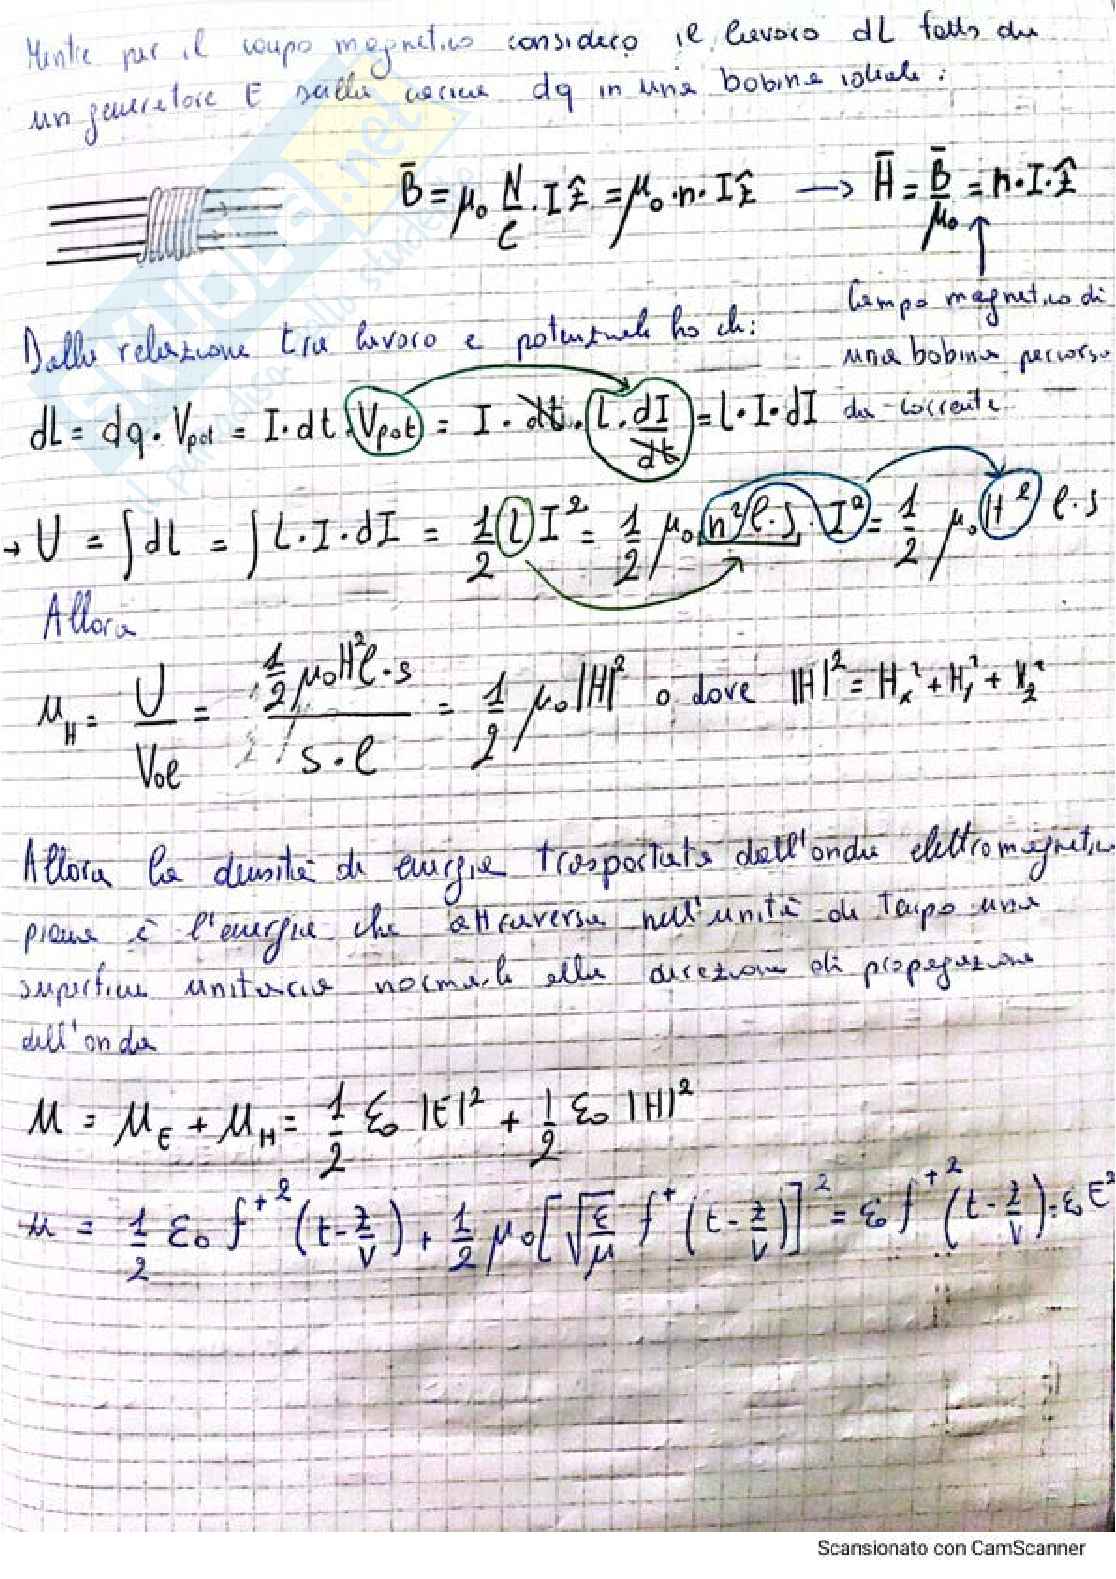 Mentre per il campo magnetico considero il lavoro dL fatto da
un generatore E sulla carica dq in una bobina ideale:
B̄ = μ₀ N/ℓ · I ẑ = μ₀ · n · I ẑ → H̄ = B̄/μ₀ = n · I · ẑ
Campo magnetico di
una bobina percorsa
da corrente
Dalla relazione tra lavoro e potenziale ho che:
dL = dq · Vpot = I · dt · Vpot = I · dt · L · dI/dt = L · I · dI
→ U = ∫ dL = ∫ L · I · dI = 1/2 L I² = 1/2 μ₀ n² ℓ · s · I² = 1/2 μ₀ H² ℓ · s
Allora
u_H = U/Vol = 1/2 μ₀ H² ℓ · s / s · ℓ = 1/2 μ₀ |H|² o dove |H|² = Hₓ² + H_y² + H_z²
Allora la densità di energia trasportata dall'onda elettromagnetica
piana è l'energia che attraversa nell'unità di tempo una
superficie unitaria normale alla direzione di propagazione
dell'onda
u = u_E + u_H = 1/2 ε₀ |E|² + 1/2 ε₀ |H|²
u = 1/2 ε₀ f⁺² (t - z/v) + 1/2 μ₀ [√(ε/μ) f⁺ (t - z/v)]² = ε₀ f⁺² (t - z/v) = ε₀ E²
skuola.net
il paradiso dello studente
Scansionato con CamScanner